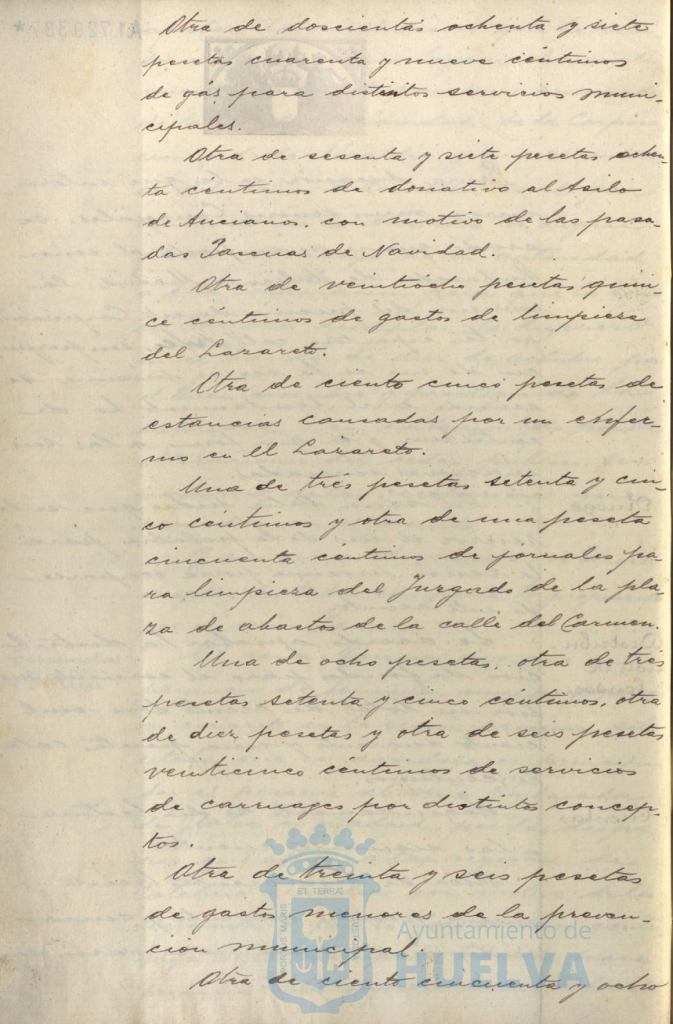 Otra de doscientas ochenta y siete
pesetas cuarenta y nueve céntimos
de gás para distintos servicios muni-
cipales.
Otra de sesenta y siete pesetas ochen-
ta céntimos de donativo al Asilo
de Ancianos, con motivo de las pasa-
das Pascuas de Navidad.
Otra de veintiocho pesetas quin-
ce céntimos de gastos de limpieza
del Lazareto.
Otra de ciento cinco pesetas de
estancias causadas por un enfer-
mo en el Lazareto.
Una de trés pesetas setenta y cin-
co céntimos y otra de una peseta
cincuenta céntimos de jornales pa-
ra limpieza del Juzgado de la pla-
za de abastos de la calle del Carmen.
Una de ocho pesetas, otra de trés
pesetas setenta y cinco céntimos, otra
de diez pesetas y otra de seis pesetas
veinticinco céntimos de servicios
de carruages por distintos concep-
tos.
Otra de treinta y seis pesetas
de gastos menores de la preven-
ción municipal.
Otra de ciento cincuenta y ocho
Ayuntamiento de
HUELVA